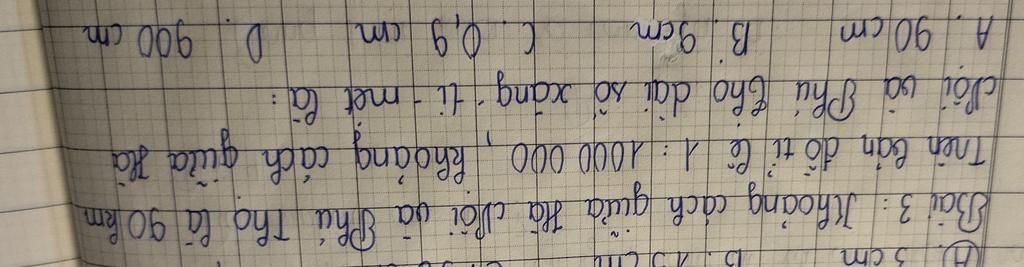 A. 3 cm B. 15 cm
Bài 3: Khoảng cách giữa Hà Nội và Phú Thọ là 90 km
Trên bản đồ tỉ lệ 1 : 1000 000, khoảng cách giữa Hà
Nội và Phú Thọ dài số xăng-ti-mét là :
A. 90 cm B. 9 cm C. 0,9 cm D. 900 cm